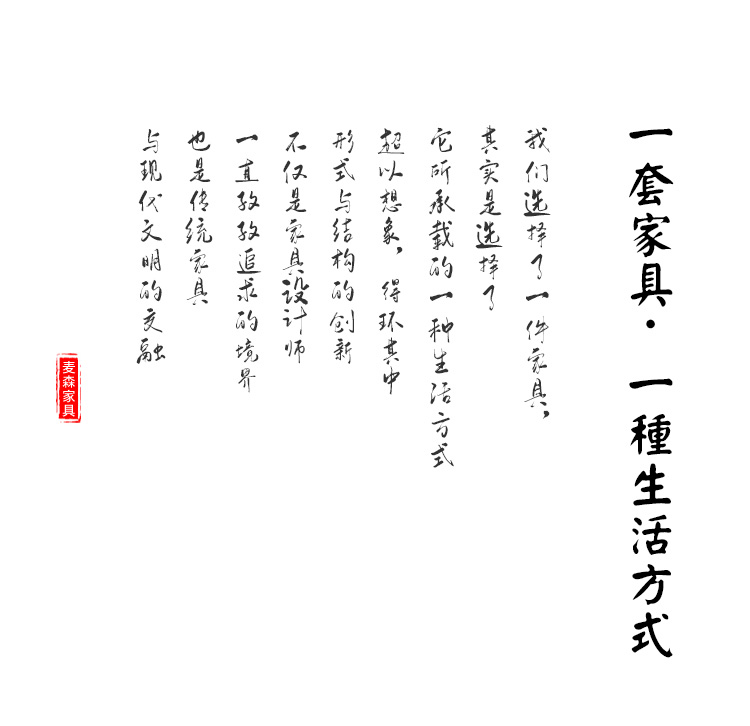 一套家具· 一種生活方式
我们选择了一件家具,
其实是选择了
它所承载的一种生活方式
超以想象, 得环其中
形式与结构的创新
不仅是家具设计师
一直孜孜追求的境界
也是传统家具
与现代文明的交融
麦森家具